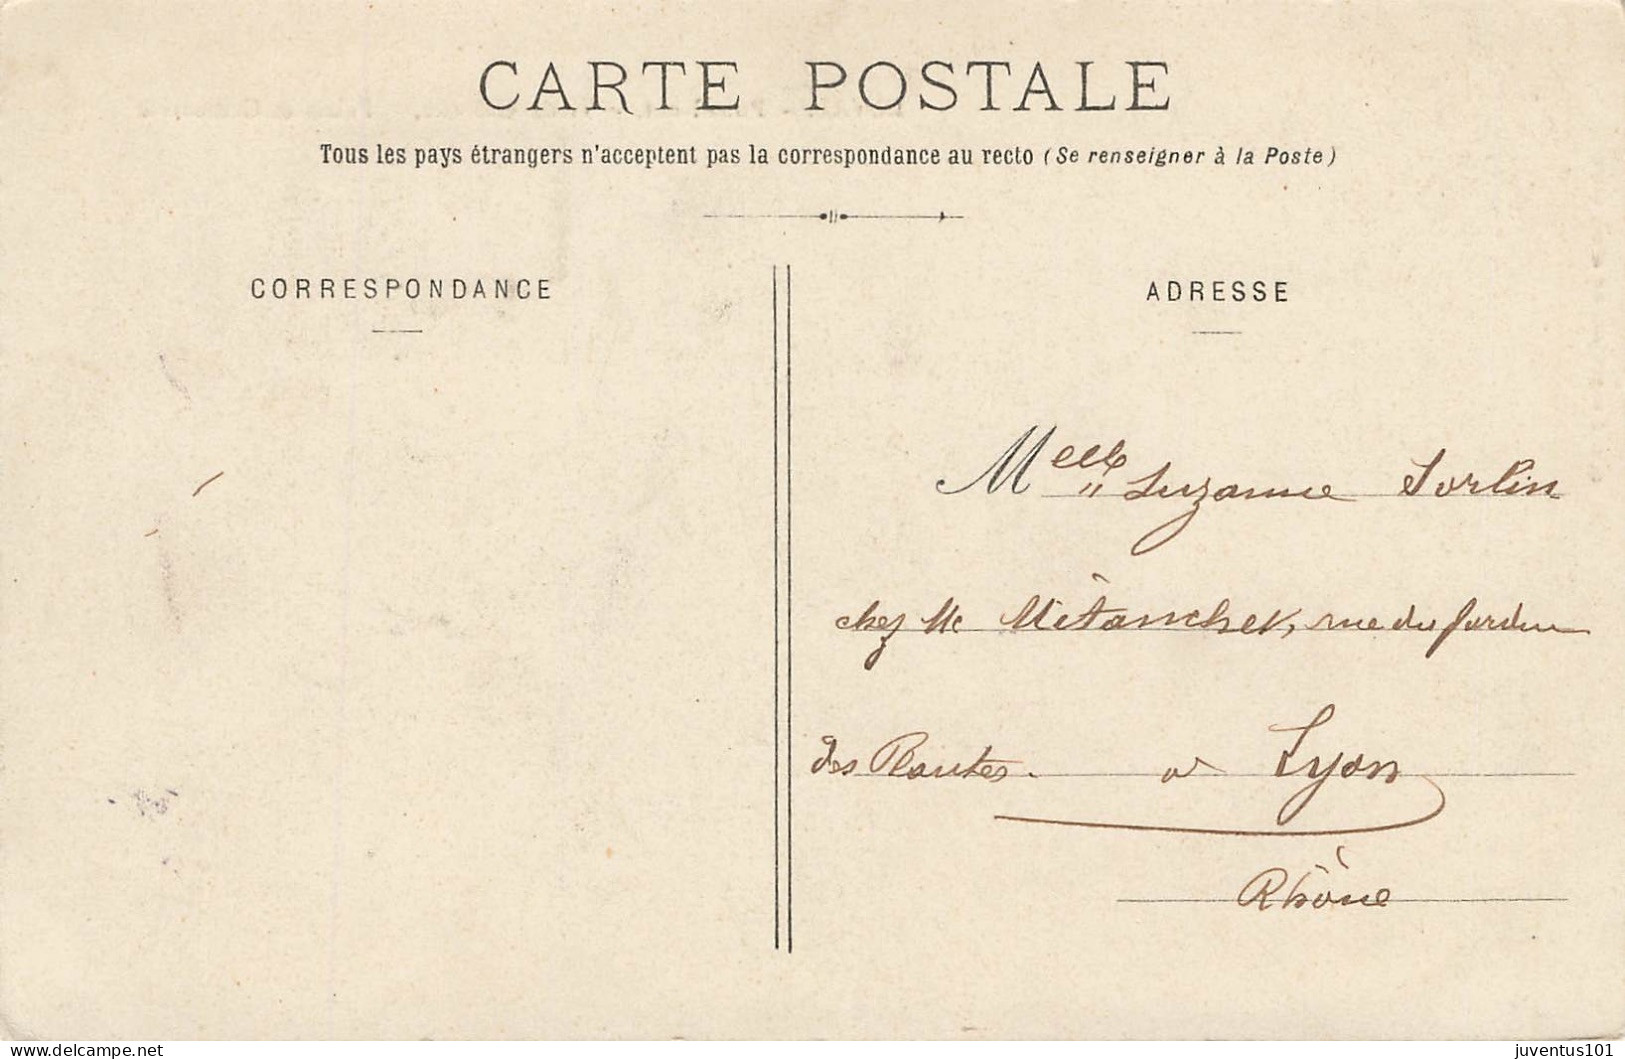 CARTE POSTALE
Tous les pays étrangers n'acceptent pas la correspondance au recto (Se renseigner à la Poste)
CORRESPONDANCE
ADRESSE
Melle Suzanne Sorlin
chez Mr Métancher, rue du Jardin
des Plantes. à Lyon
Rhône
www.delcampe.net
juventus101